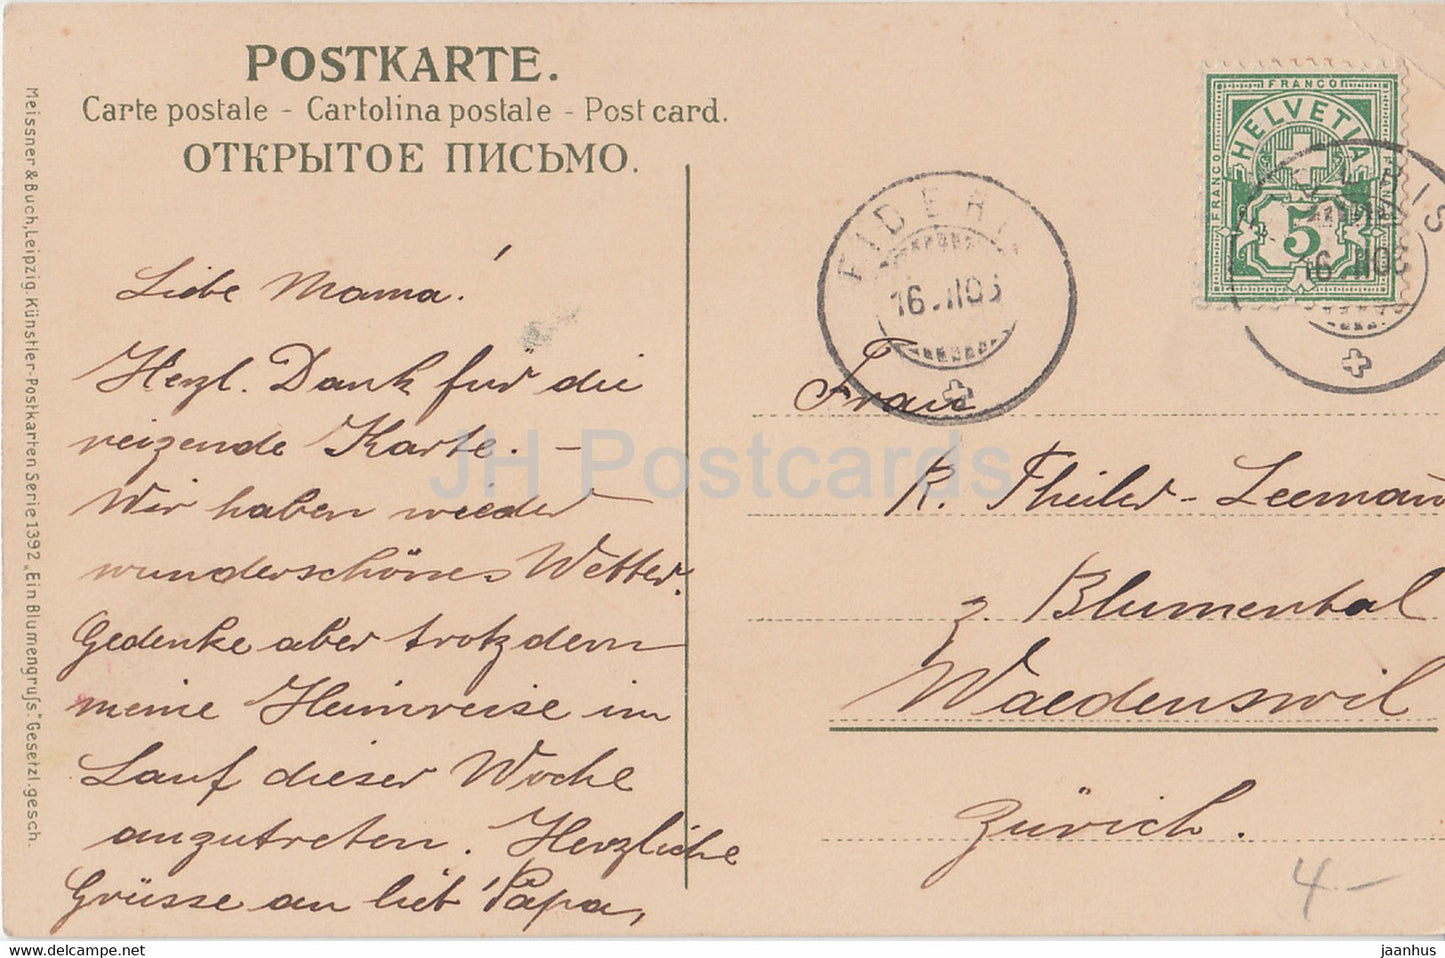 POSTKARTE.
Carte postale - Cartolina postale - Post card.
ОТКРЫТОЕ ПИСЬМО.
Meissner & Buch, Leipzig. Künstler-Postkarten Serie 1392 „Ein Blumengruſs." Gesetzl. gesch.
Liebe Mama!
Herzl. Dank für die
reizende Karte. –
Wir haben wieder
wunderschönes Wetter.
Gedenke aber trotzdem
meine Heimreise im
Lauf dieser Woche
anzutreten. Herzliche
Grüsse an lieb Papa,
FRANCO
FRANCO
HELVETIA
5
FIDERIS
16. II 06
16. II 06
Frau
R. Theiler-Leemann
z. Blumenthal
Waedenswil
Zürich.
4-
JH Postcards
https://www.ebay.com/str/jaanhus
jaanhus